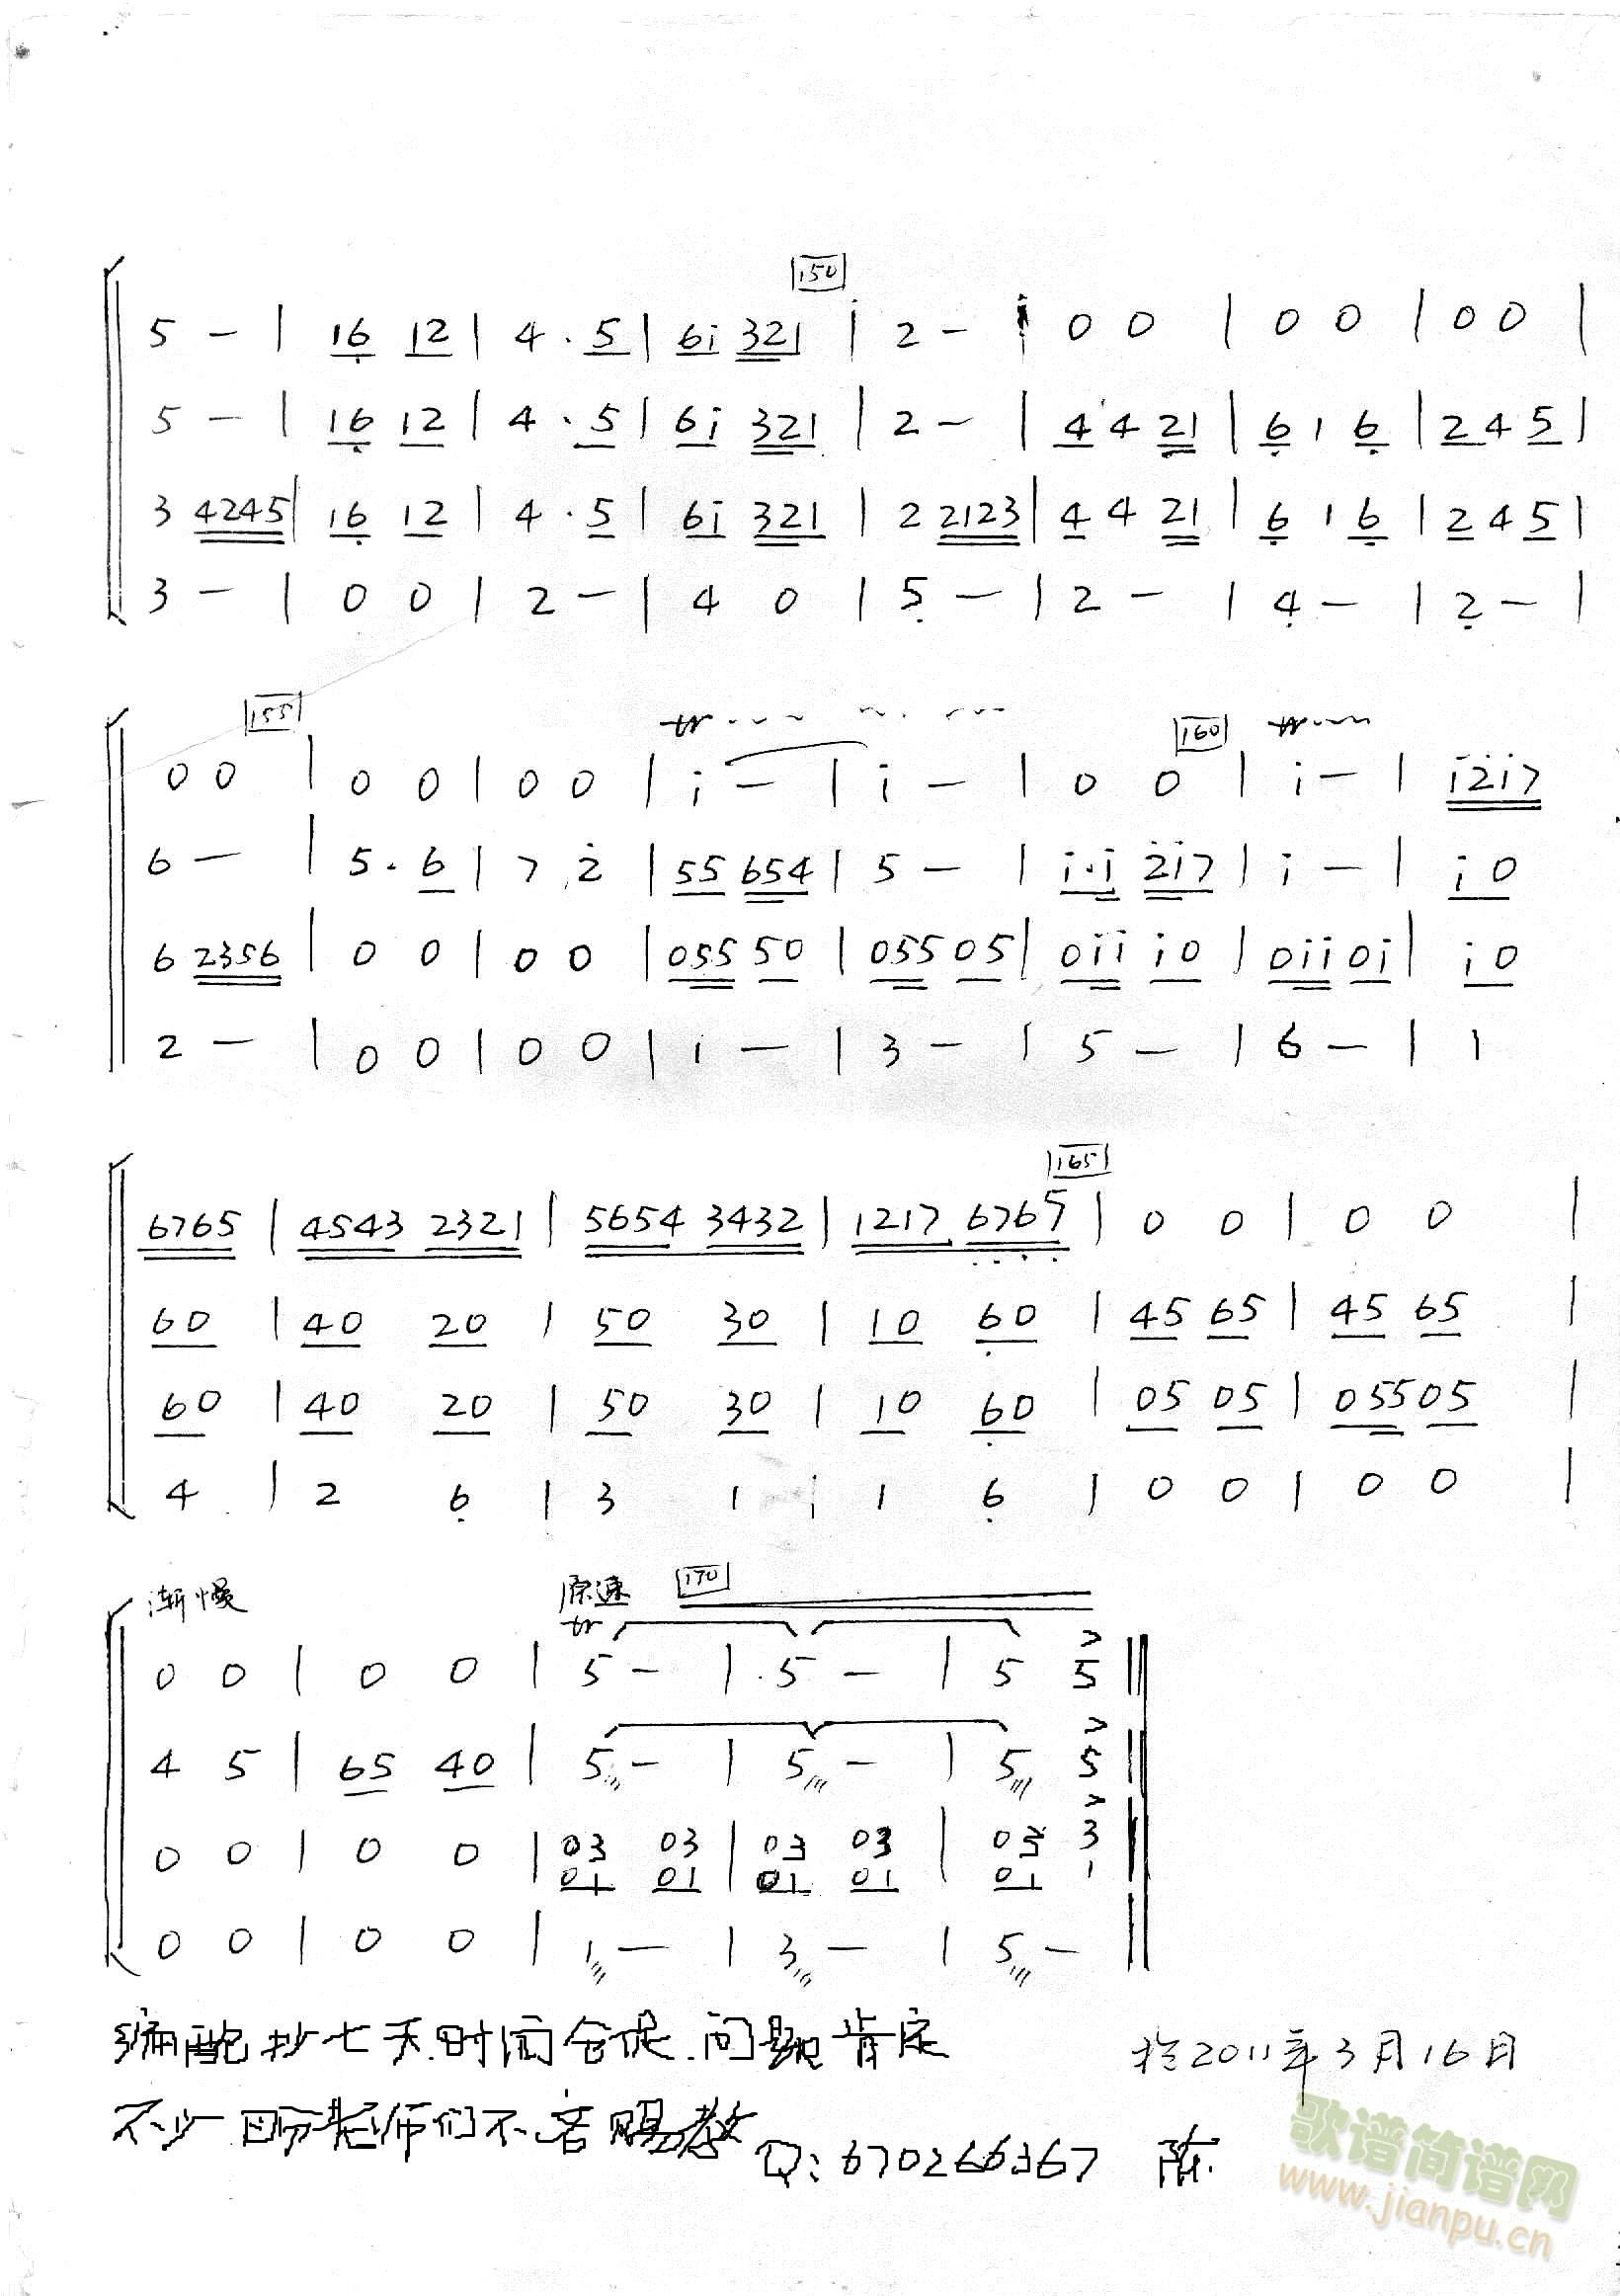 150
5 - | 16 12 | 4 · 5 | 6i 321 | 2 - | 0 0 | 0 0 | 0 0 |
5 - | 16 12 | 4 · 5 | 6i 321 | 2 - | 4 4 21 | 6 1 6 | 2 4 5 |
3 4245 | 16 12 | 4 · 5 | 6i 321 | 2 2123 | 4 4 21 | 6 1 6 | 2 4 5 |
3 - | 0 0 | 2 - | 4 0 | 5 - | 2 - | 4 - | 2 - |
155 tr 160 tr
0 0 | 0 0 | 0 0 | i - | i - | 0 0 | i - | i2i7
6 - | 5 · 6 | 7 2 | 55 654 | 5 - | i·i 2i7 | i - | i0
6 2356 | 0 0 | 0 0 | 055 50 | 055 05 | 0ii i0 | 0ii 0i | i0
2 - | 0 0 | 0 0 | 1 - | 3 - | 5 - | 6 - | 1
165
6765 | 4543 2321 | 5654 3432 | 1217 6767 | 0 0 | 0 0 |
60 | 40 20 | 50 30 | 10 60 | 45 65 | 45 65 |
60 | 40 20 | 50 30 | 10 60 | 05 05 | 055 05 |
4 | 2 6 | 3 1 | 1 6 | 0 0 | 0 0 |
渐慢 原速 170
tr
0 0 | 0 0 | 5 - | 5 - | 5 5 ‖
4 5 | 65 40 | 5 - | 5 - | 5 5 ‖
0 0 | 0 0 | 03 03 | 03 03 | 03 3 ‖
01 01 01 01 01 1
0 0 | 0 0 | 1 - | 3 - | 5 - ‖
编配抄七天.时间仓促.问题肯定
於2011年3月16日
不少 老师们不吝赐教
Q:670266367 陈.
歌谱简谱网
www.jianpu.cn